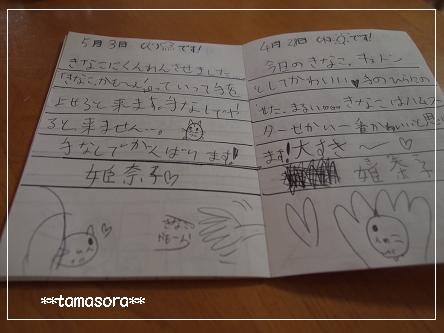 5月3日(火)です!
きなこにくんれんさせました
「きなこ、かもーん!」っていって手を
よせると来ます。手なしでや
ると来ません…。
手なしでがんばります!
姫奈子♡
きなこ
かもーん!
4月28日(木)です!
今日のきなこ。キョトン
としてかわいい♥手のひらにの
せた、まるいきなこはハムス
ターせかい一番かわいいと思い
ます!大すき〜♡
姫奈子
**tamasora**